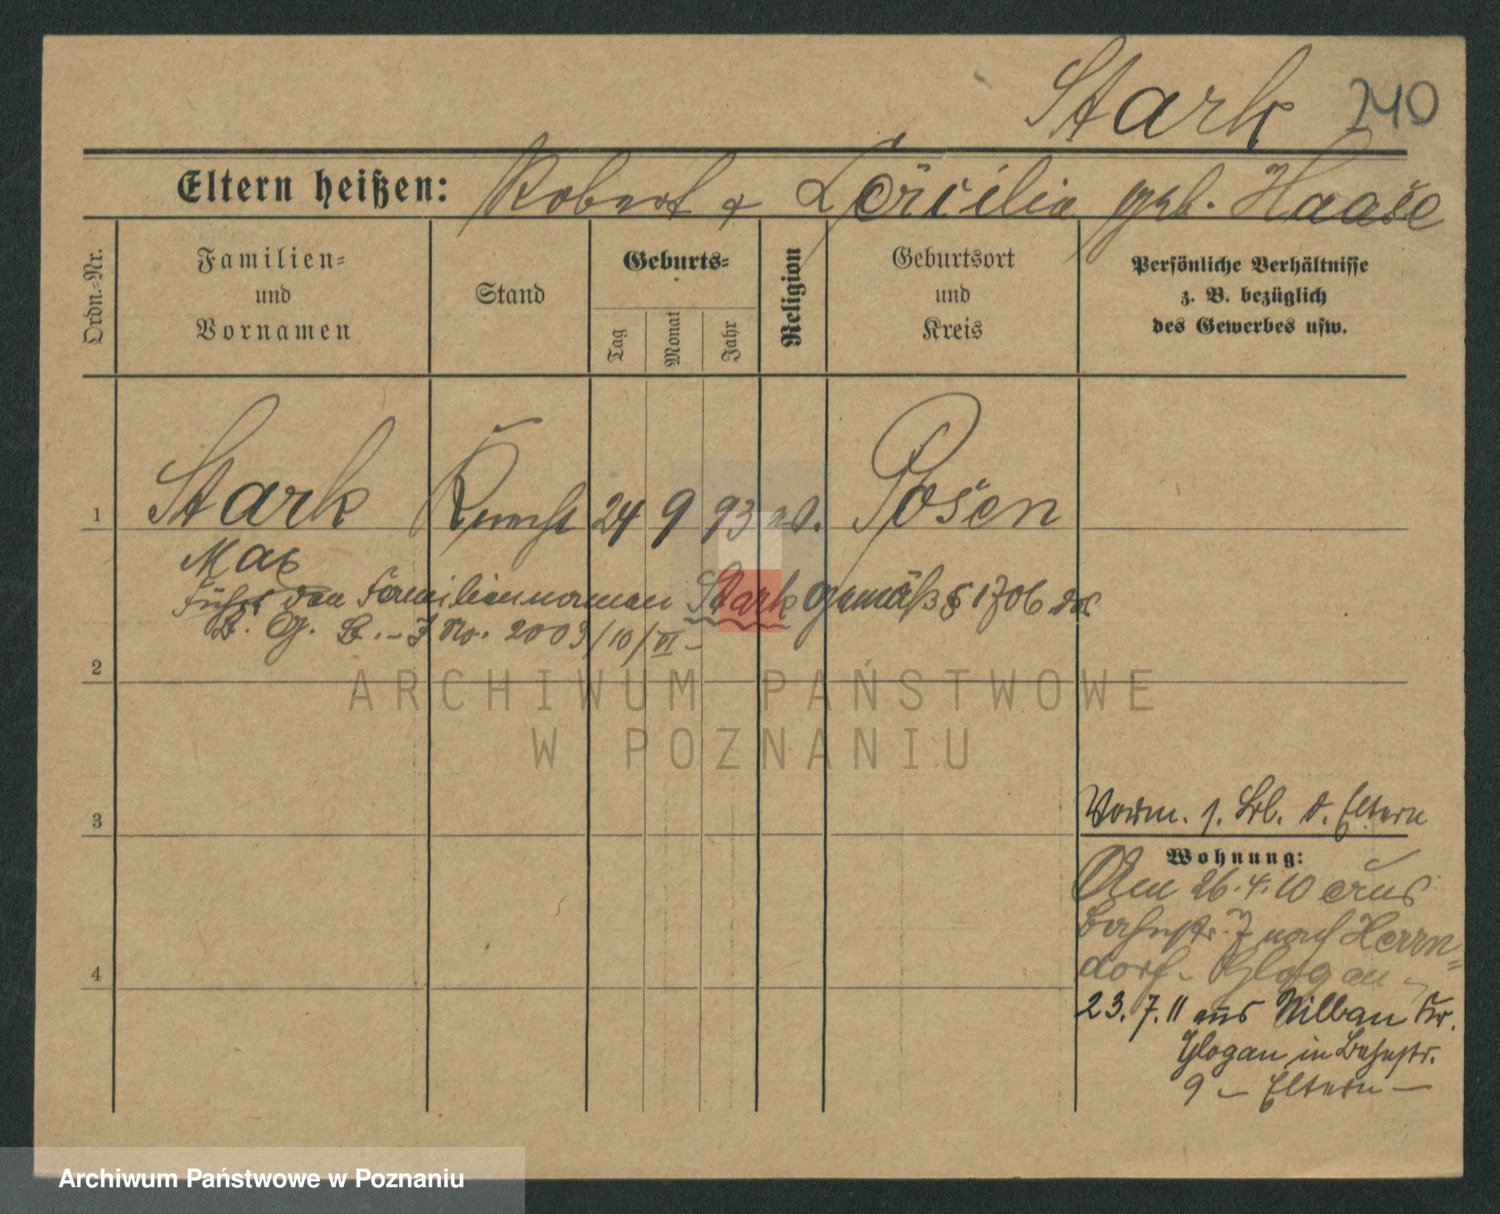 Stark 240
Eltern heißen: Robert & Cäcilia geb. Haase
Ordn.=Nr.
Familien=
und
Vornamen
Stand
Geburts=
Tag
Monat
Jahr
Religion
Geburtsort
und
Kreis
Persönliche Verhältnisse
z. B. bezüglich
des Gewerbes usw.
1 Stark Knecht 24 9 93 ev. Posen
Max
Führt den Familiennamen Stark gemäß § 1706 des
B. G. B. - J No. 2003/10/VI -
2
ARCHIWUM PAŃSTWOWE
W POZNANIU
3
Vorm. s. Bl. d. Eltern
Wohnung:
Am 26.4.10 aus
Bahnstr. 7 nach Herrn=
dorf - Glogau -
4
23.7.11 aus Nilbau Kr.
Glogau in Bahnstr.
9 - Eltern -
Archiwum Państwowe w Poznaniu